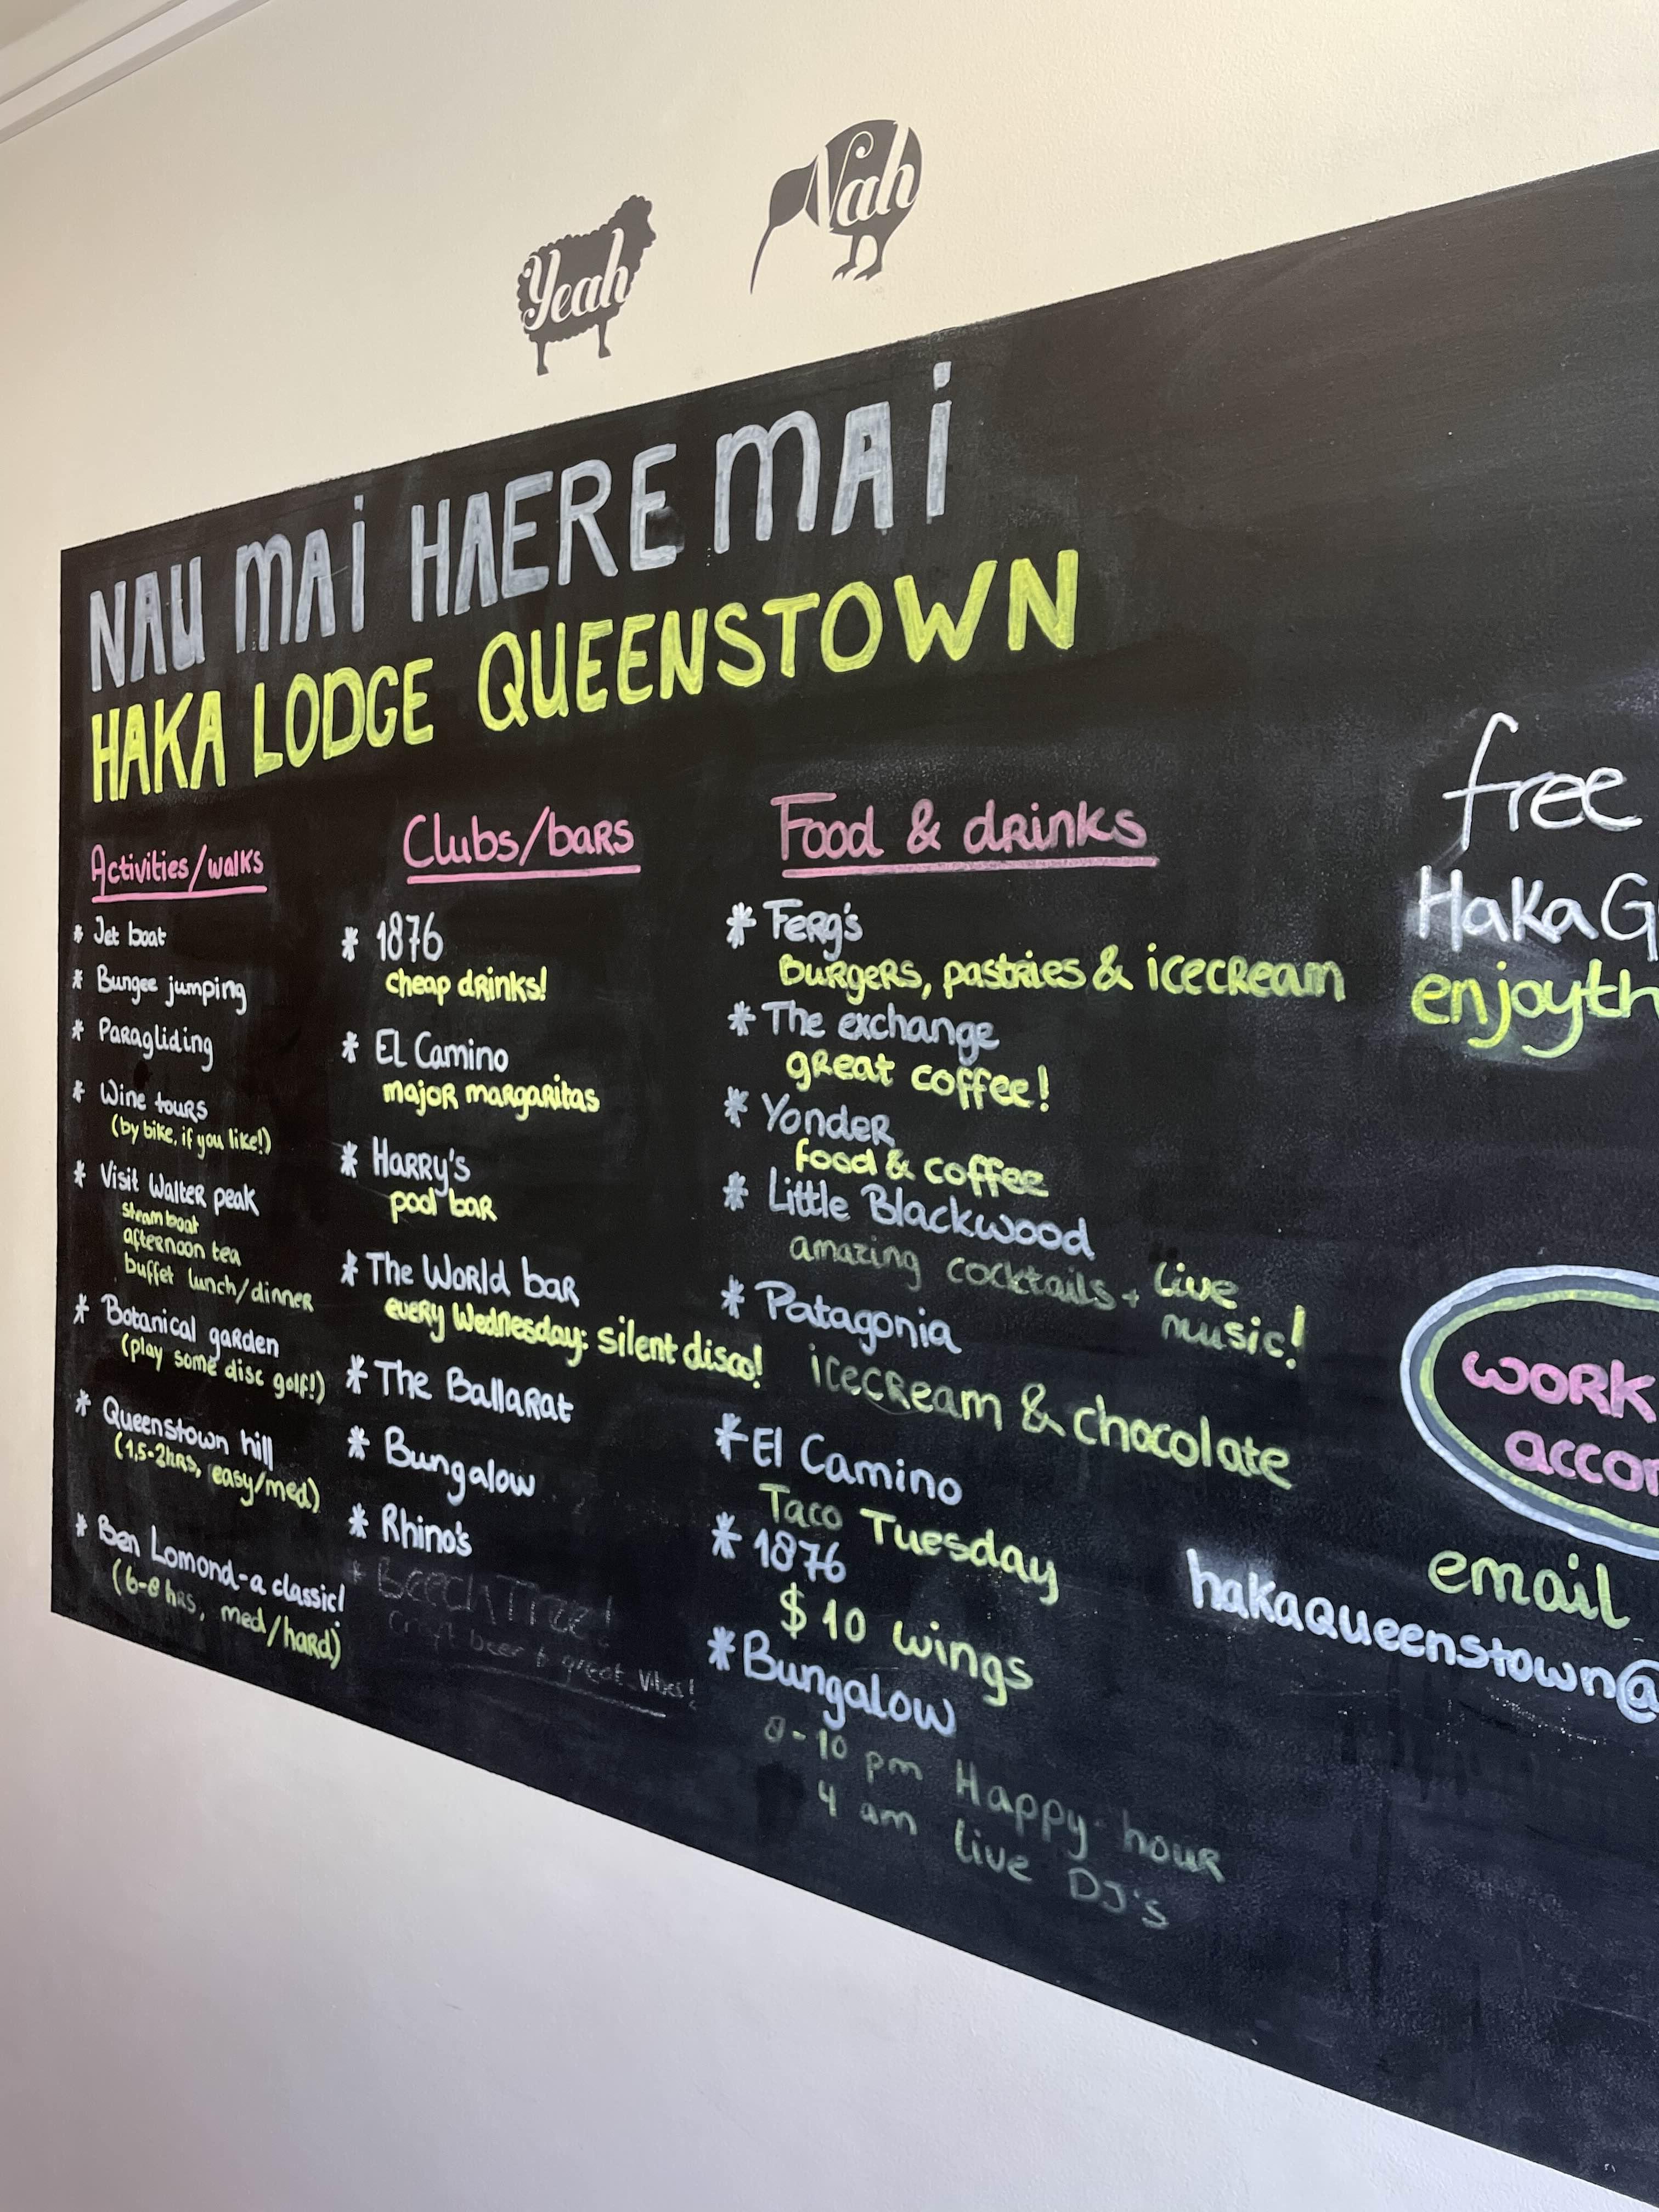 Yeah
Nah
NAU MAI HAERE MAI
HAKA LODGE QUEENSTOWN
Activities/walks
* Jet boat
* Bungee jumping
* Paragliding
* Wine tours
(by bike, if you like!)
* Visit Walter peak
steam boat
afternoon tea
buffet lunch/dinner
* Botanical garden
(play some disc golf!)
* Queenstown hill
(1,5-2hrs, easy/med)
* Ben Lomond-a classic!
(6-8 hrs, med/hard)
Clubs/bars
* 1876
cheap drinks!
* EL Camino
major margaritas
* Harry's
pool bar
* The World bar
every Wednesday: silent disco!
* The Ballarat
* Bungalow
* Rhino's
* Beech Tree!
craft beer & great vibes!
Food & drinks
* Ferg's
burgers, pastries & icecream
* The exchange
great coffee!
* Yonder
food & coffee
* Little Blackwood
amazing cocktails + live
music!
* Patagonia
icecream & chocolate
* El Camino
Taco Tuesday
* 1876
$10 wings
* Bungalow
8-10 pm Happy-hour
4 am live DJ's
free
Haka G
enjoyth
work
accom
email
hakaqueenstown@